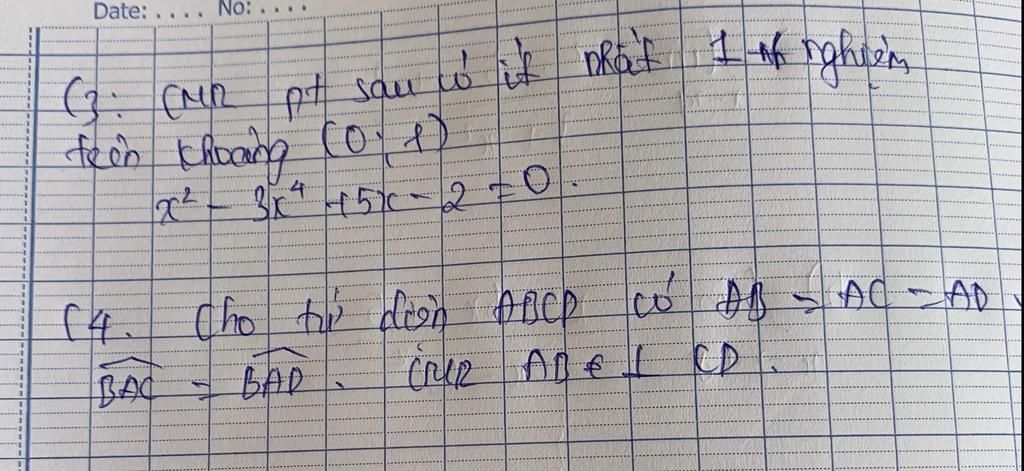 Date: .... No: ....
C3: CMR pt sau có ít nhất 1 nghiệm
trên khoảng (0; 1)
x² - 3x⁴ + 5x - 2 = 0.
C4. Cho tứ diện ABCD có AB = AC = AD,
BAC = BAD. CMR AB ⊥ CD.